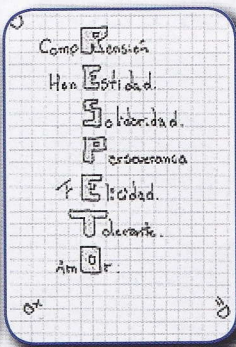 CompRensión
HonEstidad.
Solidaridad.
Perseverancia
FElicidad.
Tolerante.
AmOr.